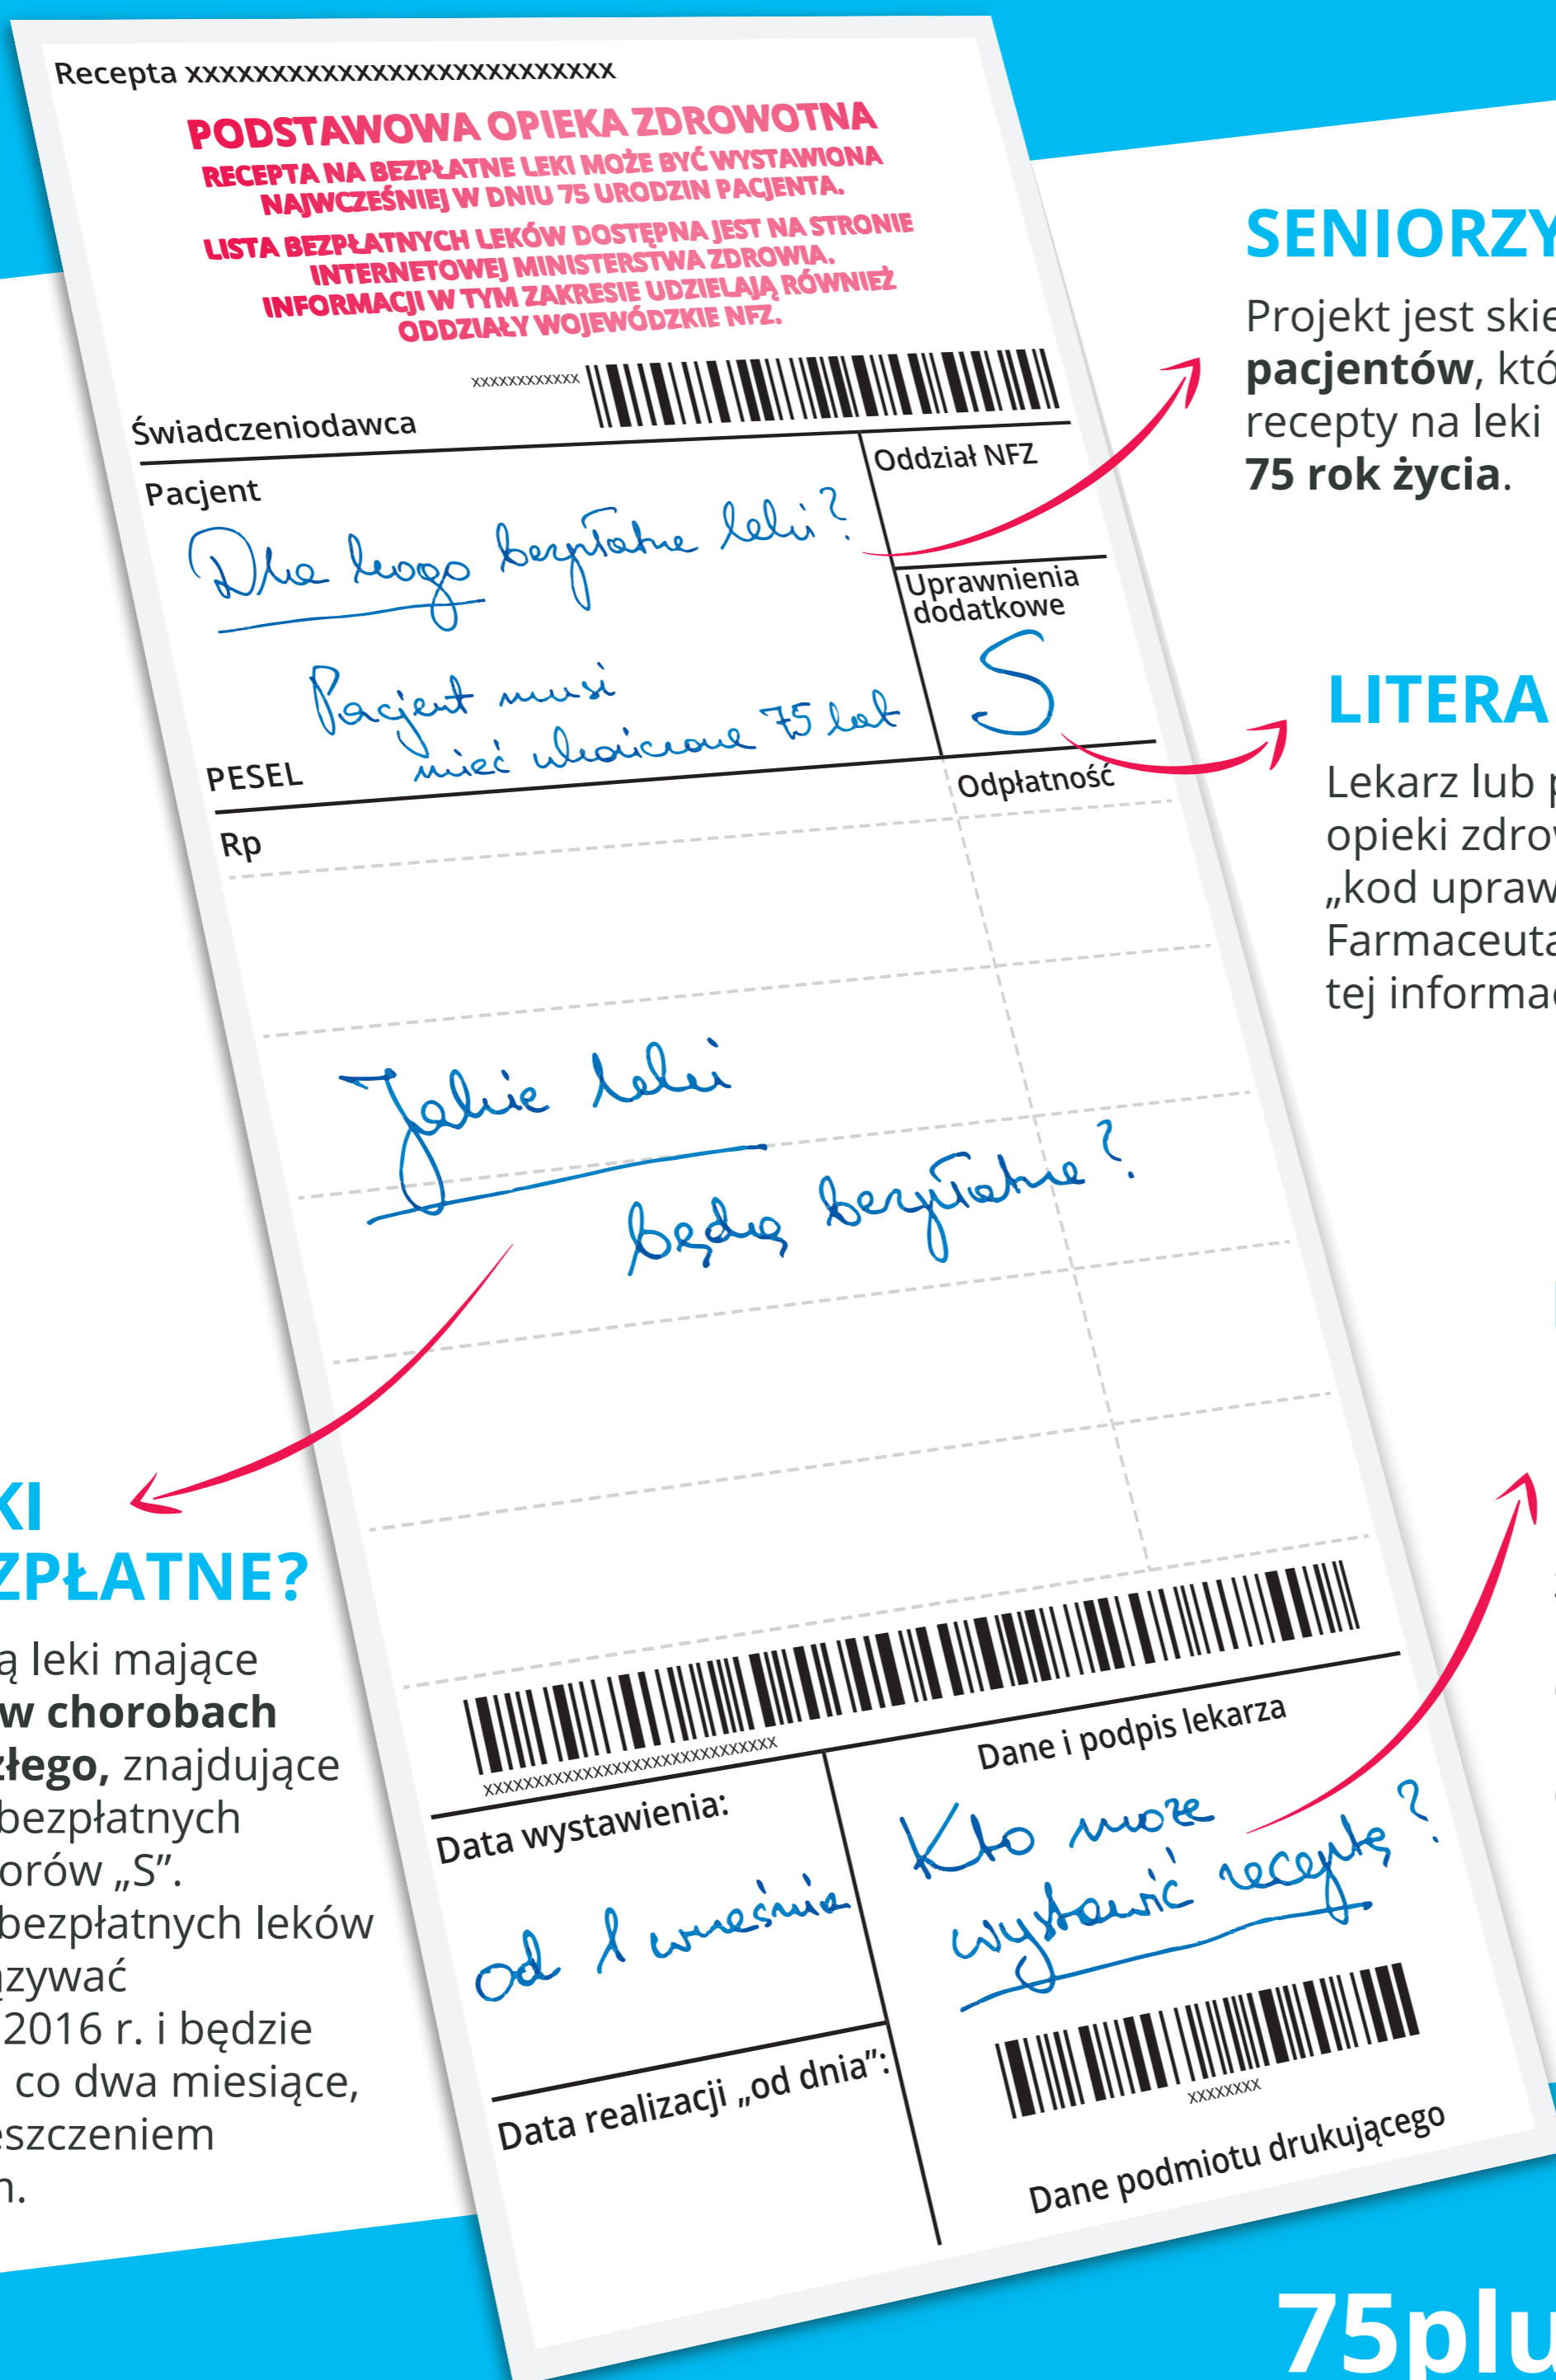 Recepta xxxxxxxxxxxxxxxxxxxxxxxxxx
PODSTAWOWA OPIEKA ZDROWOTNA
RECEPTA NA BEZPŁATNE LEKI MOŻE BYĆ WYSTAWIONA
NAJWCZEŚNIEJ W DNIU 75 URODZIN PACJENTA.
LISTA BEZPŁATNYCH LEKÓW DOSTĘPNA JEST NA STRONIE
INTERNETOWEJ MINISTERSTWA ZDROWIA.
INFORMACJI W TYM ZAKRESIE UDZIELAJĄ RÓWNIEŻ
ODDZIAŁY WOJEWÓDZKIE NFZ.
xxxxxxxxxxxx
Świadczeniodawca
Pacjent
Oddział NFZ
Dla kogo bezpłatne leki?
Uprawnienia
dodatkowe
S
Pacjent musi
mieć ukończone 75 lat
PESEL
Odpłatność
Rp
Jakie leki
będą bezpłatne?
xxxxxxxxxxxxxxxxxxxxxxxxxxxxx
Data wystawienia:
od 1 września
Dane i podpis lekarza
Kto może
wystawić receptę?
Data realizacji „od dnia”:
xxxxxxxx
Dane podmiotu drukującego
SENIORZY
Projekt jest skie
pacjentów, któ
recepty na leki
75 rok życia.
LITERA
Lekarz lub p
opieki zdrow
„kod upraw
Farmaceuta
tej informac
KI
ZPŁATNE?
ą leki mające
w chorobach
złego, znajdujące
bezpłatnych
orów „S”.
bezpłatnych leków
ązywać
2016 r. i będzie
co dwa miesiące,
eszczeniem
n.
75plu